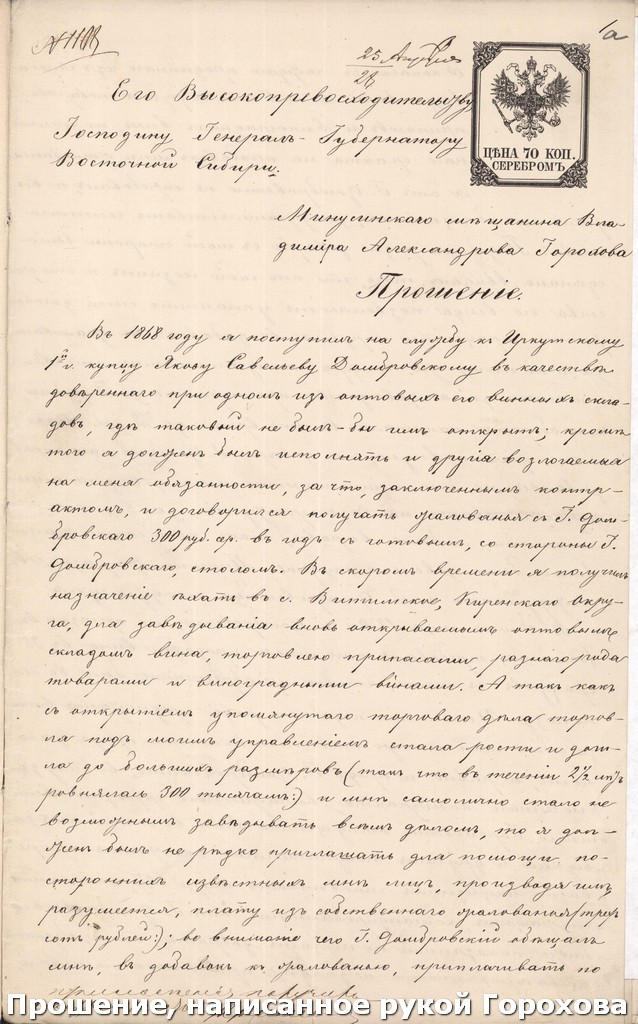 № 1108
1а
25 Апреля
28
ЦѢНА 70 КОП.
СЕРЕБРОМЪ
Его Высокопревосходительству
Господину Генералъ-Губернатору
Восточной Сибири.
Минусинскаго мѣщанина Вла-
диміра Александрова Горохова
Прошеніе.
Въ 1868 году я поступилъ на службу къ Иркутскому
1й г. купцу Якову Савельеву Домбровскому въ качествѣ
довѣреннаго при одномъ изъ оптовыхъ его винныхъ скла-
довъ, гдѣ таковый не былъ-бы имъ открытъ; кромѣ
того я долженъ былъ исполнять и другія возлогаемыя
на меня обязанности, за что, заключеннымъ контр-
актомъ, и договорился получать жалованья съ Г. Дом-
бровскаго 300 руб. сер. въ годъ съ готовымъ, со стороны Г.
Домбровскаго, столомъ. Въ скоромъ времени я получилъ
назначеніе ѣхать въ с. Витимское, Киренскаго окру-
га, для завѣдыванія вновь открываемымъ оптовымъ
складомъ вина, торговлею припасами разнаго рода
товарами и виноградными винами. А такъ какъ
съ открытіемъ упомянутаго торговаго дѣла торгов-
ля подъ моимъ управленіемъ стала рости и дош-
ла до большихъ размѣровъ (такъ что въ теченіи 2½ лѣтъ
ровнялась 300 тысячамъ:) и мнѣ самолично стало не
возможнымъ завѣдывать всѣмъ дѣломъ, то я дол-
женъ былъ не рѣдко приглашать для помощи по-
стороннихъ извѣстныхъ мнѣ лицъ, производя имъ,
разумеется, плату изъ собственнаго жалованья (трех
сотъ рублей:); во вниманіе чего Г. Домбровскій обѣщалъ
мнѣ, въ добавокъ къ жалованью, приплачивать по
Прошение, написанное рукой Горохова